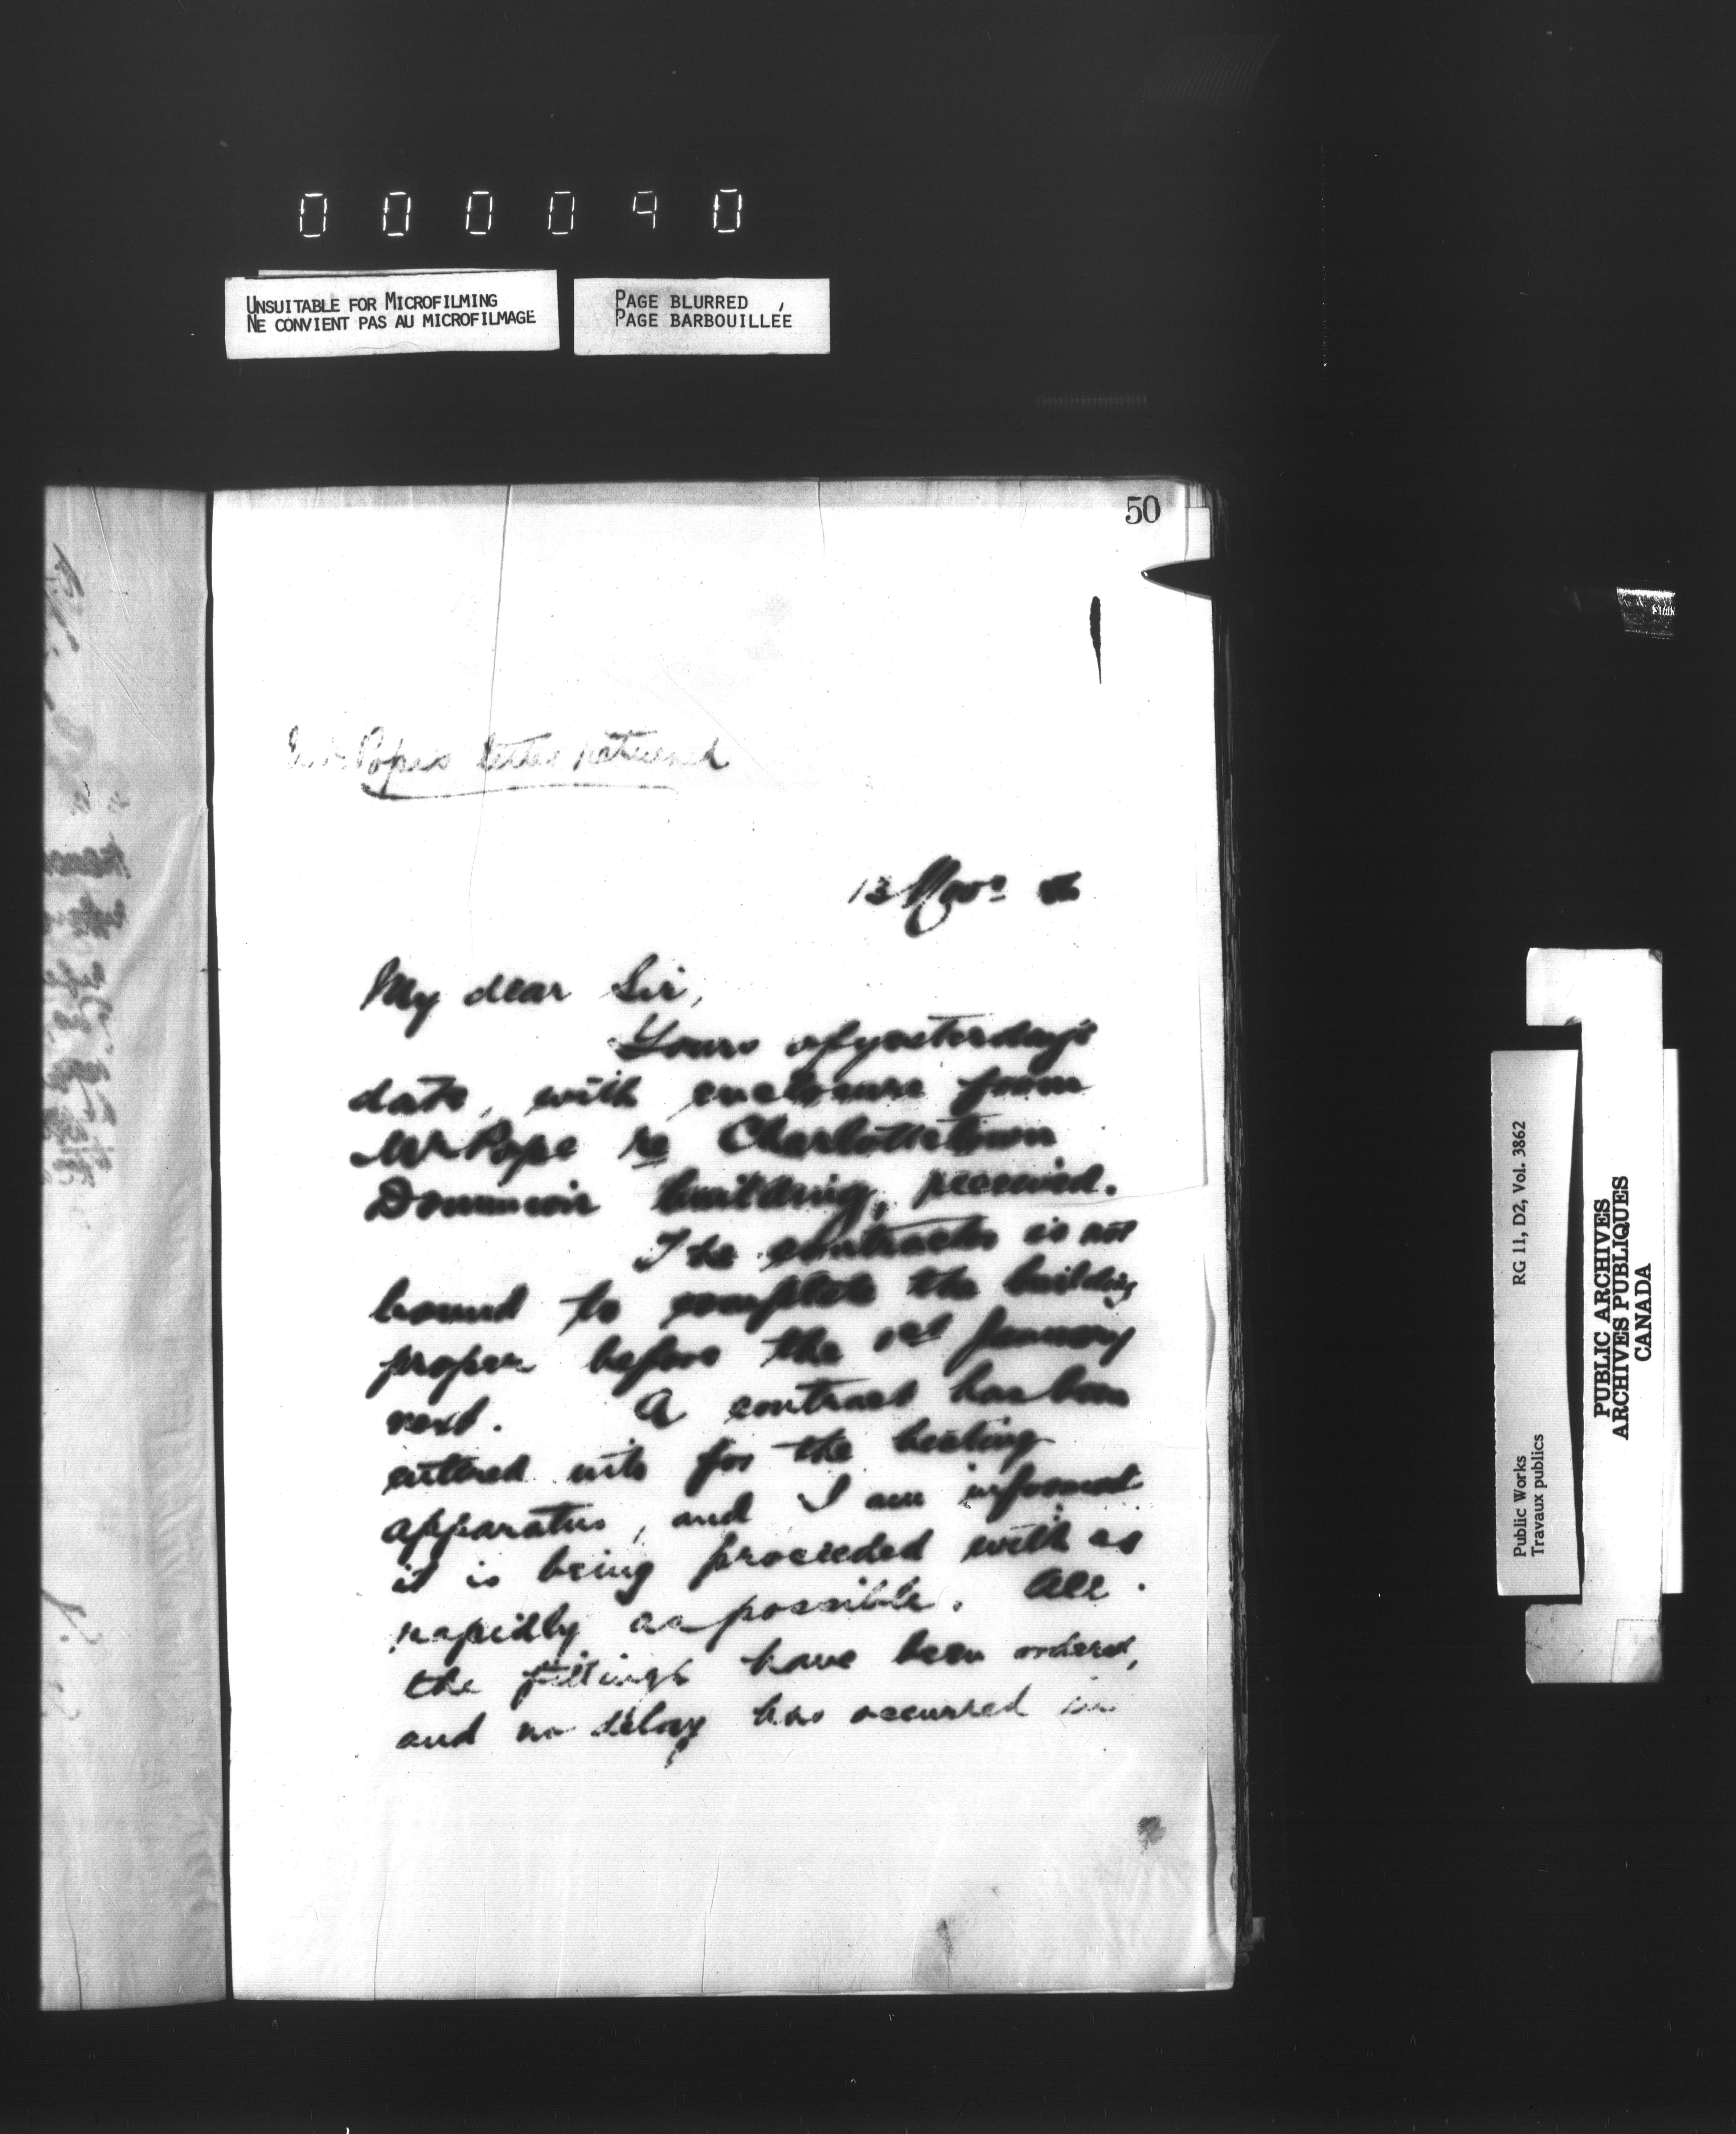 000090
UNSUITABLE FOR MICROFILMING
NE CONVIENT PAS AU MICROFILMAGE
PAGE BLURRED
PAGE BARBOUILLÉE
50
Mr Pope's letter returned
13 Novr
My dear Sir,
Yours of yesterday's
date, with enclosure from
Mr Pope re Charlottetown
Dominion building, received.
The contractor is not
bound to complete the building
proper before the 1st January
next. A contract has been
entered into for the heating
apparatus, and I am informed
it is being proceeded with as
rapidly as possible. All
the fittings have been ordered,
and no delay has occurred in
Public Works
Travaux publics
RG 11, D2, Vol. 3862
PUBLIC ARCHIVES
ARCHIVES PUBLIQUES
CANADA